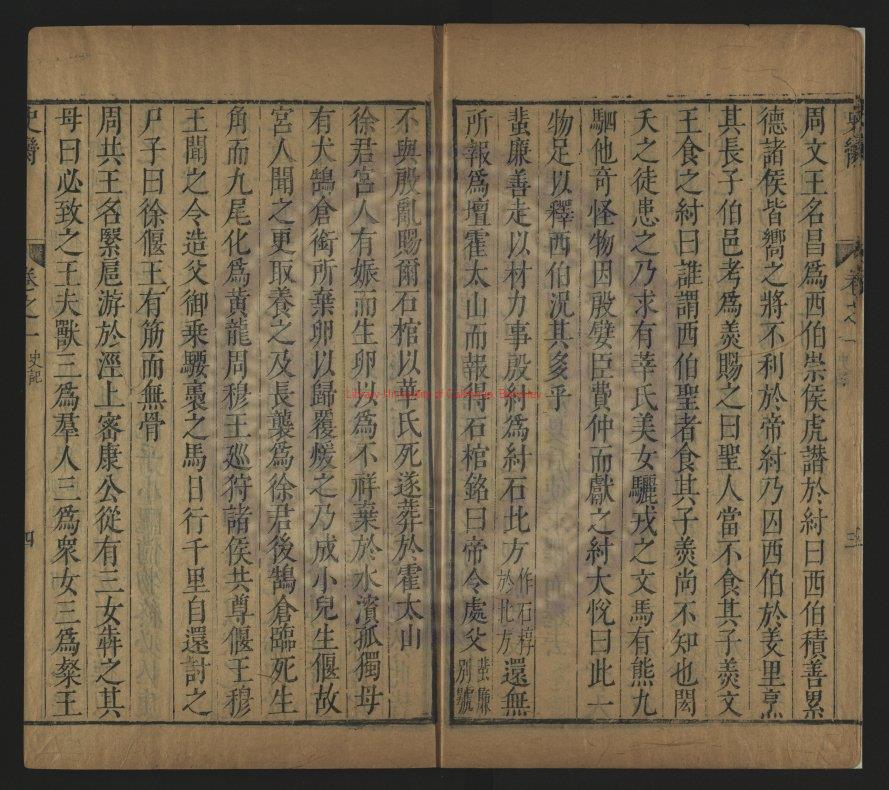 周文王名昌爲西伯崇侯虎譖於紂曰西伯積善累
德諸侯皆嚮之將不利於帝紂乃囚西伯於羑里烹
其長子伯邑考爲羹賜之曰聖人當不食其子羹文
王食之紂曰誰謂西伯聖者食其子羹尚不知也閎
夭之徒患之乃求有莘氏美女驪戎之文馬有熊九
駟他奇怪物因殷嬖臣費仲而獻之紂大悅曰此一
物足以釋西伯況其多乎
蜚廉善走以材力事殷紂爲紂石北方作石椁於北方還無
所報爲壇霍太山而報得石棺銘曰帝令處父蜚廉別號
不與殷亂賜爾石棺以華氏死遂葬於霍太山
徐君宮人有娠而生卵以爲不祥棄於水濱孤獨母
有犬鵠倉銜所棄卵以歸覆煖之乃成小兒生偃故
宮人聞之更取養之及長襲爲徐君後鵠倉臨死生
角而九尾化爲黃龍周穆王廵狩諸侯共尊偃王穆
王聞之令造父御乘騕褭之馬日行千里自還討之
尸子曰徐偃王有筋而無骨
周共王名緊扈游於涇上密康公從有三女犇之其
母曰必致之王夫獸三爲羣人三爲衆女三爲粲王
卷之一
史記
四
三
Library, University of California, Berkeley